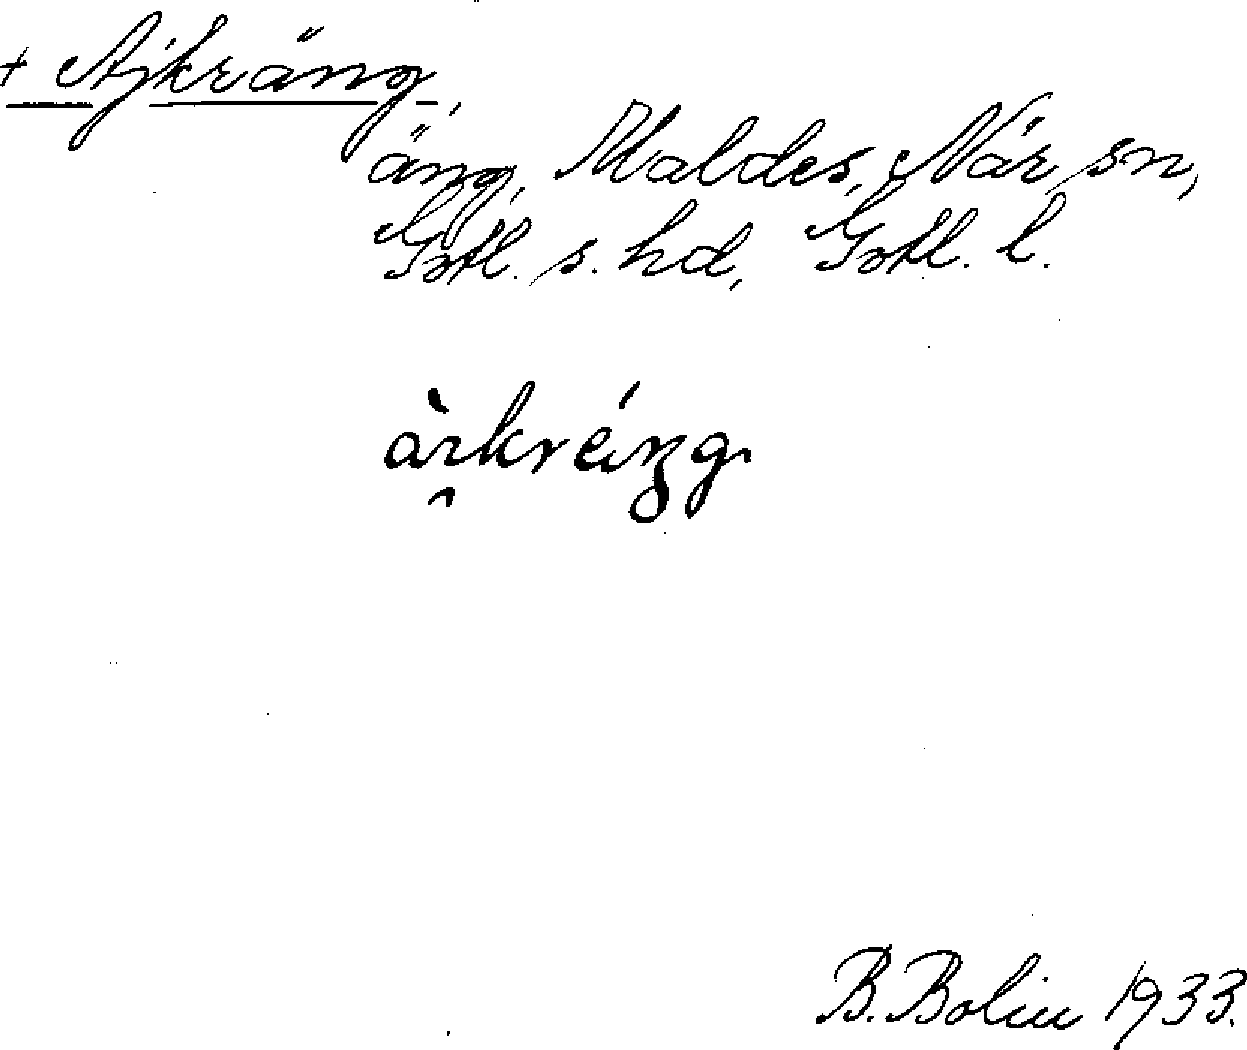 + Ajkräng,
äng, Maldes, När sn,
Gotl. s. hd, Gotl. l.
B. Bolin 1933.